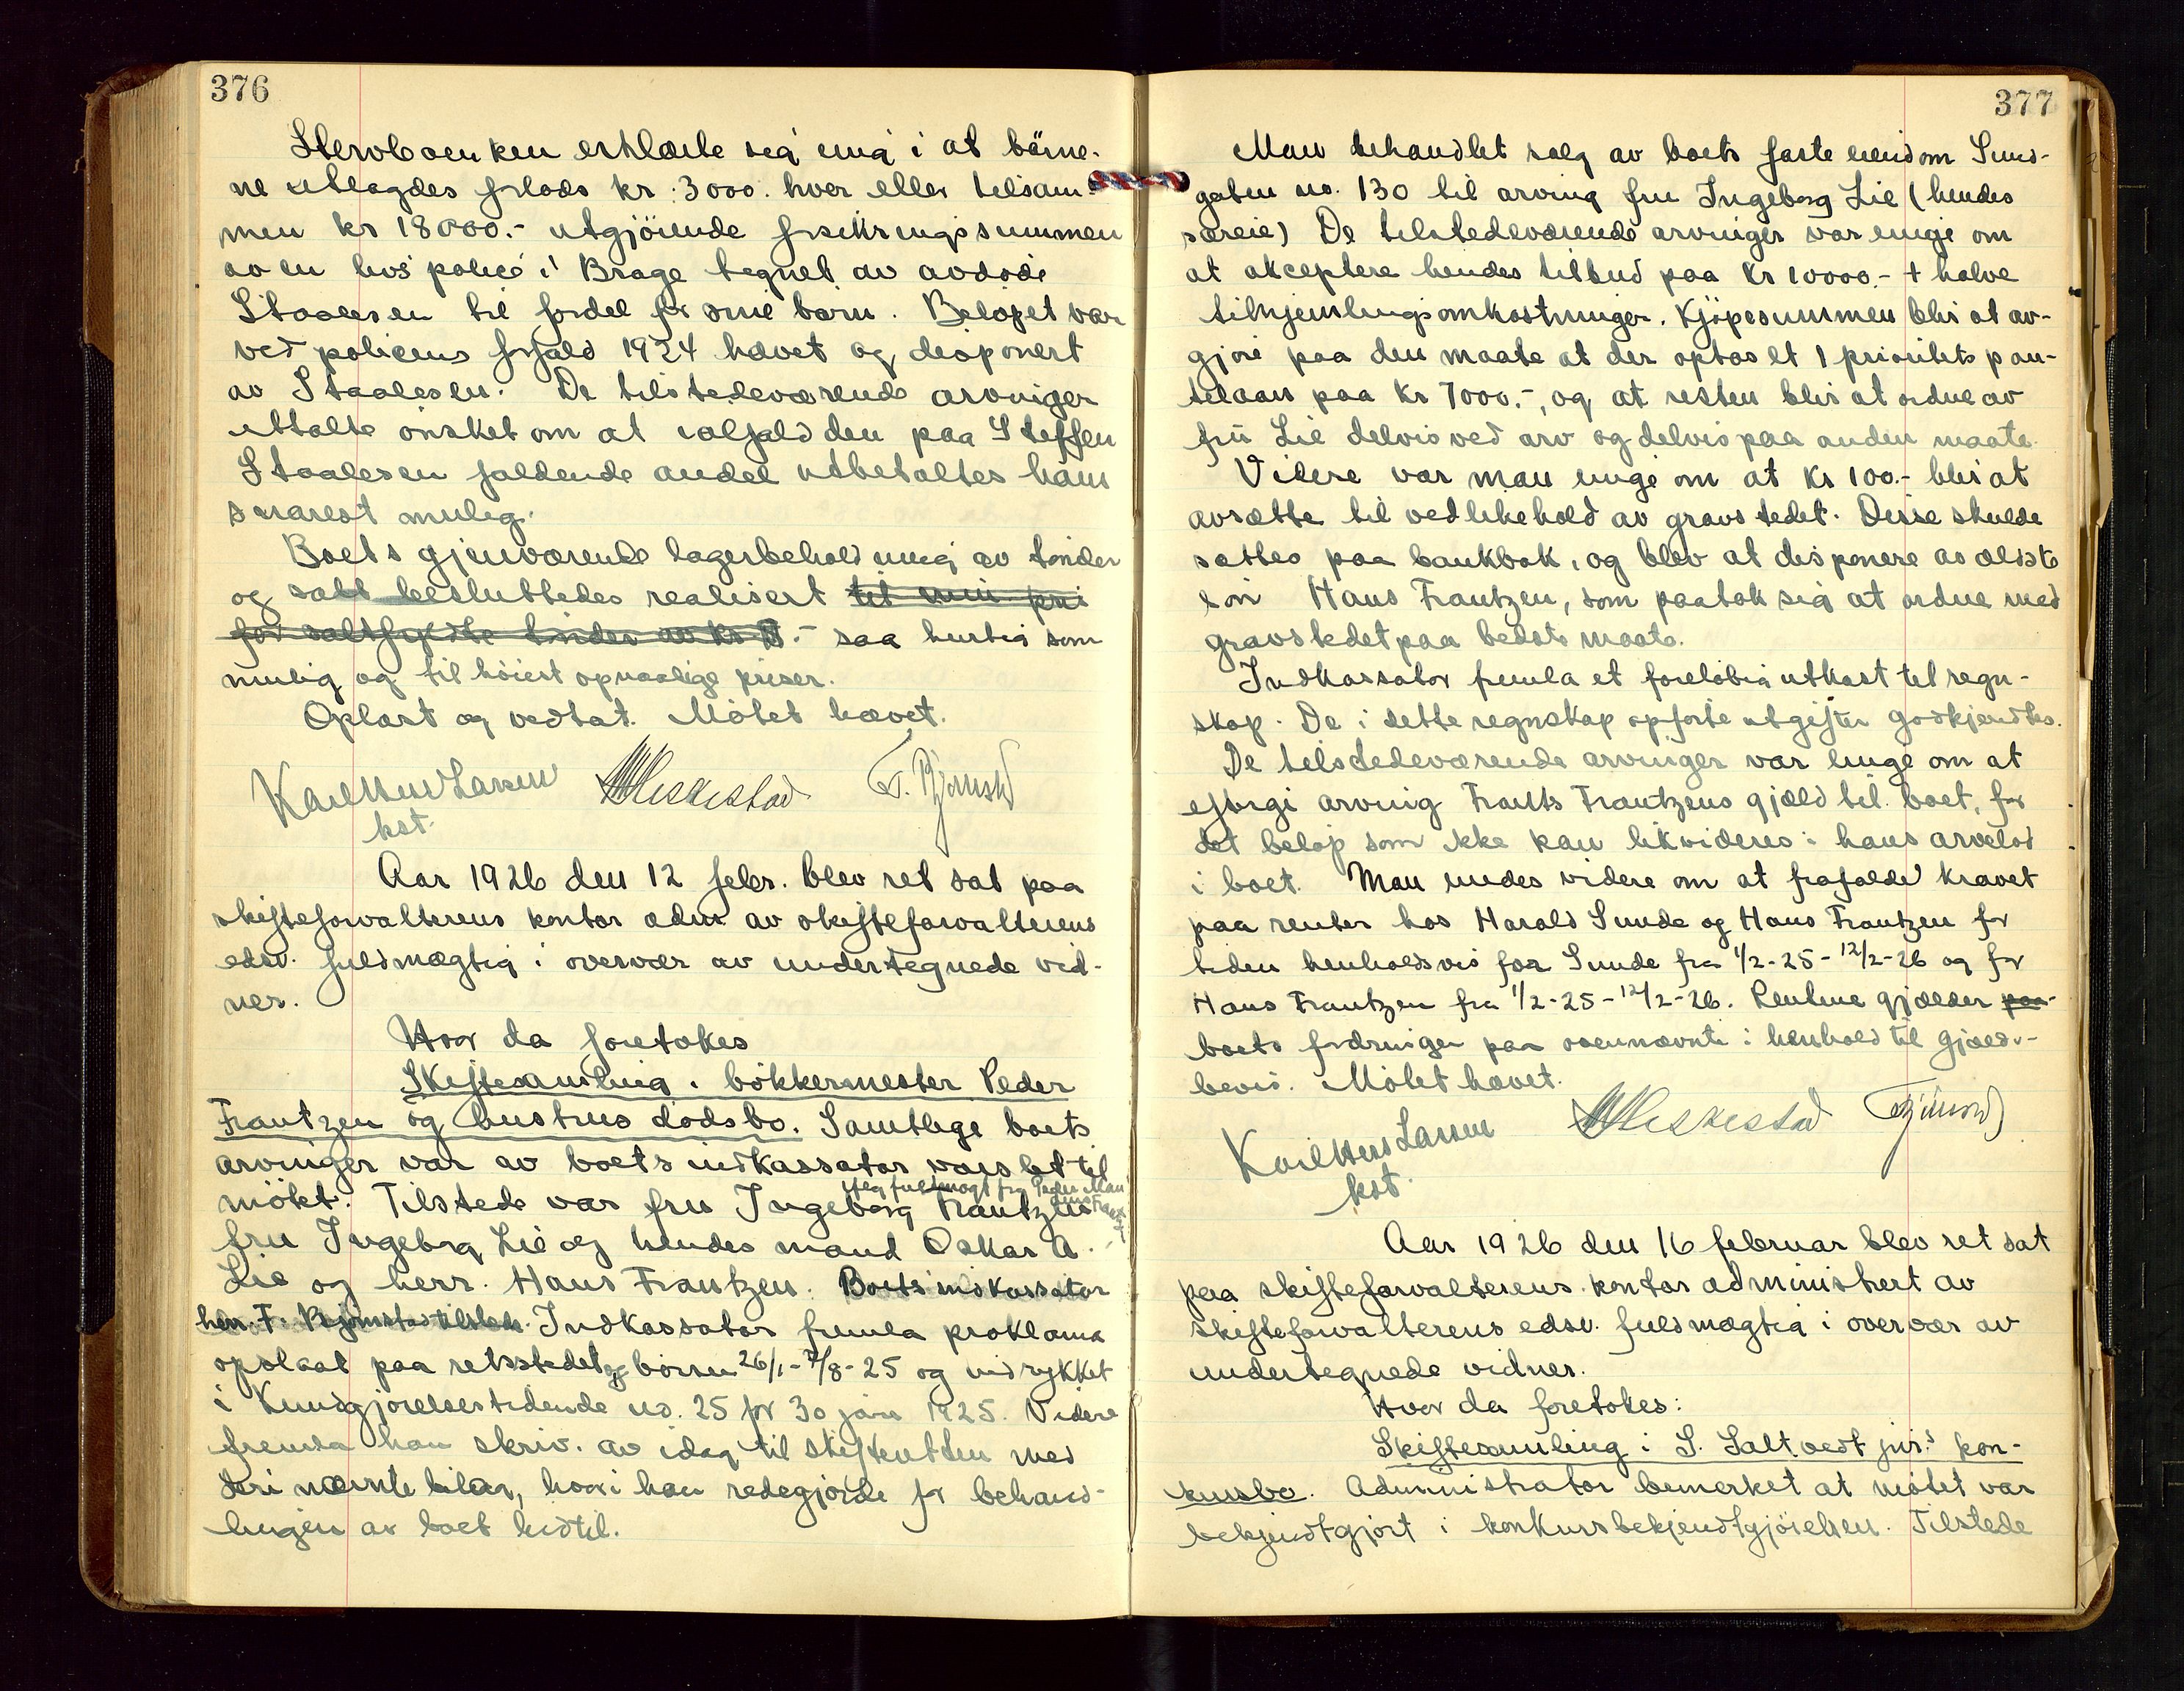 376
Stervboenken erklærte sig enig i at børne-
ne utlagdes forlods kr. 3000. hver eller tilsam-
men kr 18000.- utgjørende forsikringssummen
av en livspolice i Brage tegnet av avdøde
Staalesen til fordel for sine børn. Beløpet var
ved policens forfald 1924 hævet og disponert
av Staalesen. De tilstedeværende arvinger
uttalte ønsket om at ialfald den paa Steffen
Staalesen faldende andel utbetaltes ham
snarest mulig.
Boets gjenværende lagerbeholdning av tønder
og salt besluttedes realisert til min. pri
for saltfyldte tønder av kr .- saa hurtig som
mulig og til høiest opnaalige priser.
Oplæst og vedtat. Møtet hævet.
Karl Larsen Meskestad F. Bjørnstad
kst.
Aar 1926 den 12 febr. blev ret sat paa
skifteforvalterens kontor adm av skifteforvalterens
edsv. fuldmægtig i overvær av undertegnede vid-
ner.
Hvor da foretokes
Skiftesamling i bøkkermester Peder
Frantzen og hustrus dødsbo. Samtlige boets
arvinger var av boets indkassator varslet til
ifølg fuldmagt fra Peder Mau
møtet. Tilstede var fru Ingeborg Frantzen
fru Ingeborg Lie og hendes mand Oskar A.
Lie og herr. Hans Frantzen. Boets indkassator
herr. F. Bjørnstad tilstede. Indkassator fremla proklama
opslaat paa retsstedet og børsen 26/1-7/8-25 og indrykket
i Kundgjørelsestidende no. 25 for 30 jan 1925. Videre
fremla han skriv. av idag til skifteretten med
deri nævnte bilag, hvori han redegjorde for behand-
lingen av boet hidtil.
377
Man behandlet salg av boets faste eiendom Sund-
gaten no. 130 til arving fru Ingeborg Lie (hendes
særeie) De tilstedeværende arvinger var enige om
at akceptere hendes tilbud paa kr 10000.- + halve
tilhjemlingsomkostninger. Kjøpesummen blir at av-
gjøre paa den maate at der optas et 1 prioritets pan-
telaan paa kr 7000.-, og at resten blir at ordne av
fru Lie delvis ved arv og delvis paa anden maate.
Videre var man enige om at kr 100.- blir at
avsætte til vedlikehold av gravstedet. Disse skulde
sættes paa bankbok, og blev at disponere av ældste
søn Hans Frantzen, som paatok sig at ordne med
gravstedet paa bedste maate.
Indkassator fremla et foreløbig utkast til regn-
skap. De i dette regnskap opførte utgifter godkjendtes.
De tilstedeværende arvinger var enige om at
eftergi arving Frants Frantzens gjæld til boet, for
det beløp som ikke kan likvideres i hans arvelod
i boet. Man enedes videre om at frafalde kravet
paa renter hos Harald Sunde og Hans Frantzen for
tiden henholdsvis foa Sunde fra 1/2-25-12/2-26 og for
Hans Frantzen fra 1/2-25-12/2-26. Rentene gjælder paa
boets fordringer paa ovennævnte i henhold til gjælds-
bevis. Møtet hævet.
Karl Larsen Meskestad Bjørnstad
kst.
Aar 1926 den 16 februar blev ret sat
paa skifteforvalterens kontor administrert av
skifteforvalterens edsv. fuldmægtig i overvær av
undertegnede vidner.
Hvor da foretokes:
Skiftesamling i S. Saltvedt jnr.s kon-
kursbo. Administrator bemerket at møtet var
bekjendtgjort i konkursbekjendtgjørelsen. Tilstede